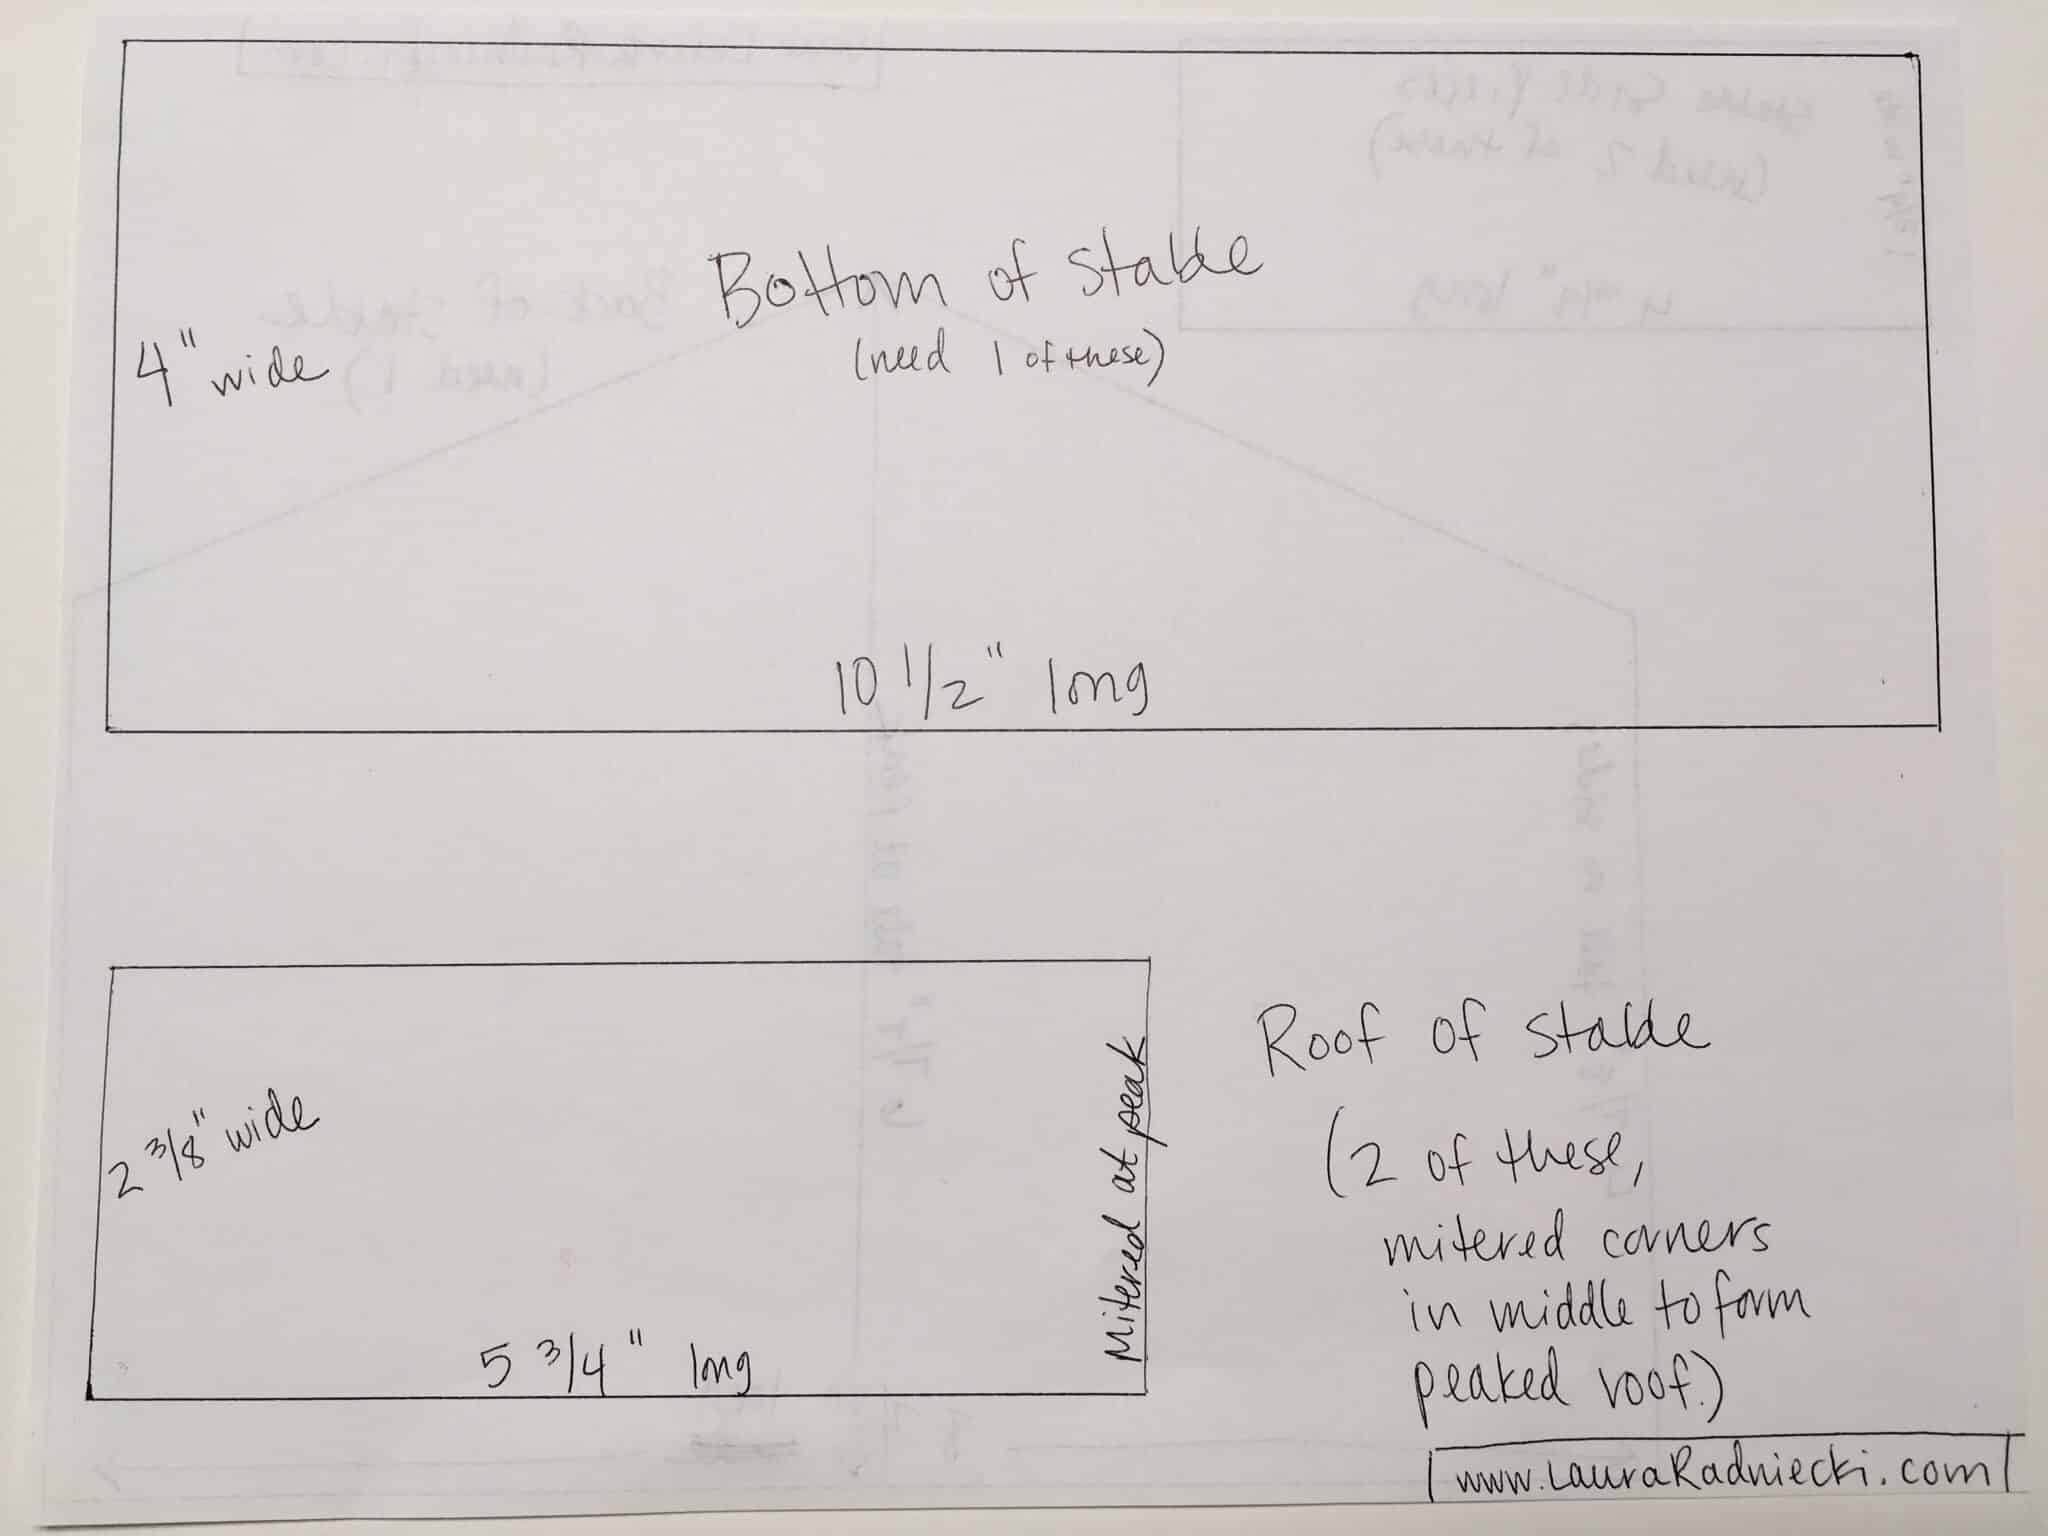 Bottom of Stable
(need 1 of these)
4" wide
10 1/2" long
2 3/8" wide
5 3/4" long
Mitered at peak
Roof of Stable
(2 of these,
mitered corners
in middle to form
peaked roof.)
www.LauraRadniecki.com